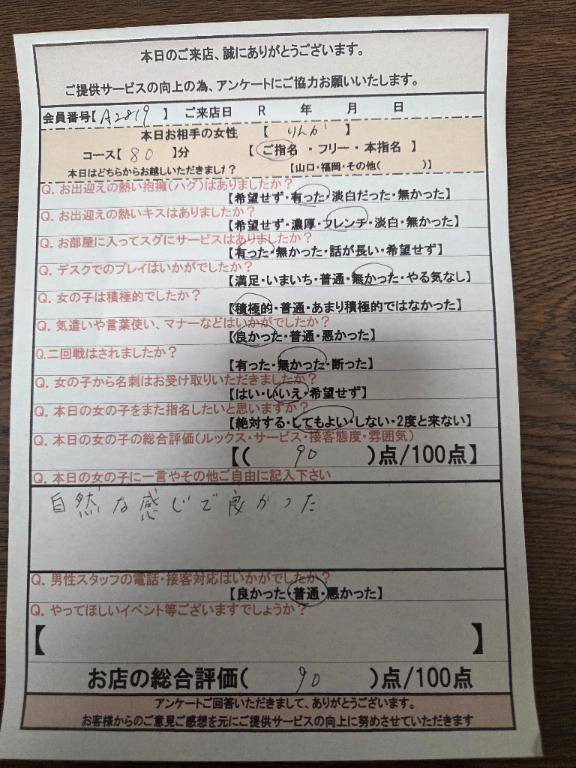 本日のご来店、誠にありがとうございます。
ご提供サービスの向上の為、アンケートにご協力お願いいたします。
会員番号【 A2819 】 ご来店日 R 年 月 日
本日お相手の女性 【 りんか 】
コース【 80 】分 【 ご指名 ・ フリー ・ 本指名 】
本日はどちらからお越しいただきました? 【山口・福岡・その他( )】
Q. お出迎えの熱い抱擁(ハグ)はありましたか?
【希望せず・有った・淡白だった・無かった】
Q. お出迎えの熱いキスはありましたか?
【希望せず・濃厚・フレンチ・淡白・無かった】
Q. お部屋に入ってスグにサービスはありましたか?
【有った・無かった・話が長い・希望せず】
Q. デスクでのプレイはいかがでしたか?
【満足・いまいち・普通・無かった・やる気なし】
Q. 女の子は積極的でしたか?
【積極的・普通・あまり積極的ではなかった】
Q. 気遣いや言葉使い、マナーなどはいかがでしたか?
【良かった・普通・悪かった】
Q. 二回戦はされましたか?
【有った・無かった・断った】
Q. 女の子から名刺はお受け取りいただきましたか?
【はい・いいえ・希望せず】
Q. 本日の女の子をまた指名したいと思いますか?
【絶対する・してもよい・しない・2度と来ない】
Q. 本日の女の子の総合評価(ルックス・サービス・接客態度・雰囲気)
【( 90 )点/100点】
Q. 本日の女の子に一言やその他ご自由に記入下さい
自然な感じで良かった
Q. 男性スタッフの電話・接客対応はいかがでしたか?
【良かった・普通・悪かった】
Q. やってほしいイベント等ございますでしょうか?
【 】
お店の総合評価( 90 )点/100点
アンケートご回答いただきまして、ありがとうございます。
お客様からのご意見ご感想を元にご提供サービスの向上に努めさせていただきます